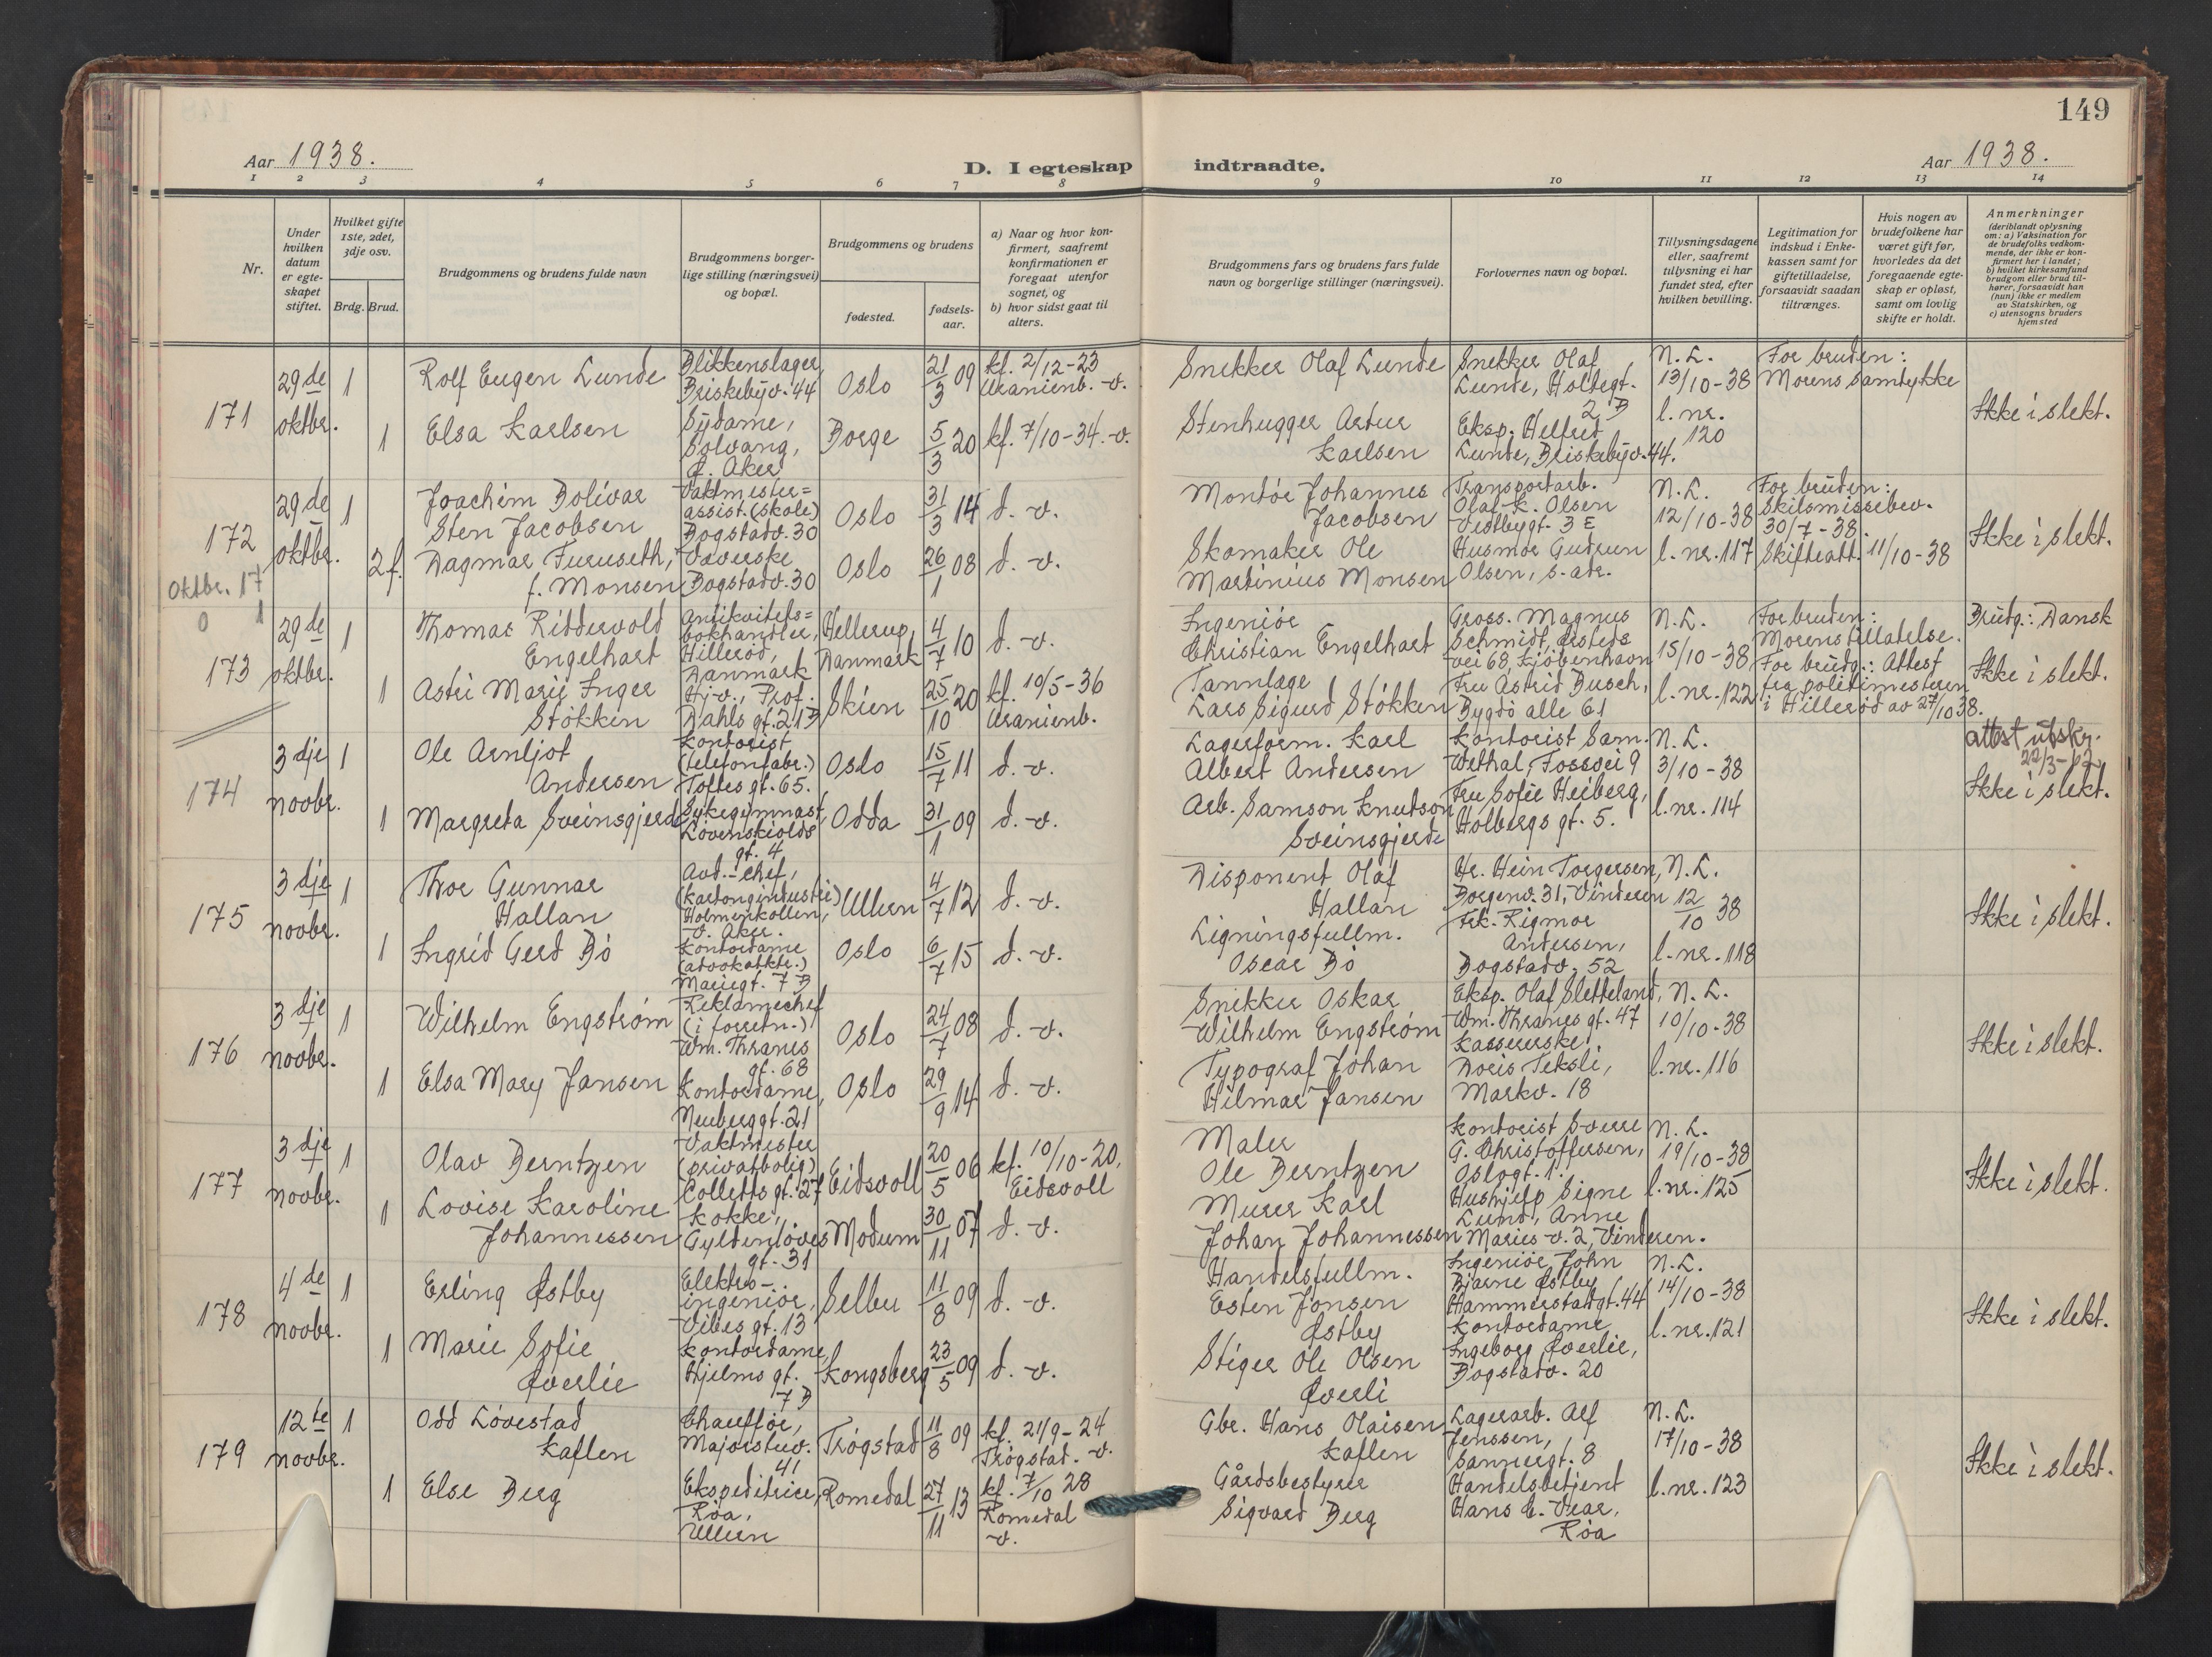 149
Aar 1938.
D. I egteskap indtraadte.
Aar 1938.
1 2 3 4 5 6 7 8 9 10 11 12 13 14
Nr.
Under hvilken datum er egteskapet stiftet.
Hvilket gifte 1ste, 2det, 3dje osv.
Brdg. Brud.
Brudgommens og brudens fulde navn
Brudgommens borgerlige stilling (næringsvei) og bopæl.
Brudgommens og brudens
fødested.
fødselsaar.
a) Naar og hvor konfirmert, saafremt konfirmationen er foregaat utenfor sognet, og
b) hvor sidst gaat til alters.
Brudgommens fars og brudens fars fulde navn og borgerlige stillinger (næringsvei).
Forlovernes navn og bopæl.
Tillysningsdagene eller, saafremt tillysning ei har fundet sted, efter hvilken bevilling.
Legitimation for indskud i Enkekassen samt for giftetilladelse, forsaavidt saadan tiltrænges.
Hvis nogen av brudefolkene har været gift før, hvorledes da det foregaaende egteskap er opløst, samt om lovlig skifte er holdt.
Anmerkninger
(deriblandt oplysning om: a) Vaksination for de brudefolks vedkommende, der ikke er konfirmert her i landet;
b) hvilket kirkesamfund brudgom eller brud tilhører, forsaavidt han (hun) ikke er medlem av Statskirken, og
c) utensogns bruders hjemsted
171
29de oktbr.
1 Rolf Eugen Lunde
Blikkenslager, Briskebyv. 44
Oslo
21/3 09
kf. 2/12-23 Uranienb. -v.
Snekker Olaf Lunde
Snekker Olaf Lunde, Holtegt. 2 B
N. L. 13/10-38 l. nr. 120
For bruden: Morens samtykke
Ikke i slekt.
1 Elsa Karlsen
Sydame, Solvang, Ø. Aker
Borge
5/3 20
kf. 7/10-34. -v.
Stenhugger Artur Karlsen
Eksp. Helfred Lunde, Briskebyv. 44.
172
29de oktbr.
1 Joachim Bolivar Sten Jacobsen
Vaktmester=assist. (skole) Bogstadv. 30
Oslo
31/3 14
d. -v.
Montør Johannes Jacobsen
Transportarb. Olaf K. Olsen Vestbygt. 3 E
N. L. 12/10-38 l. nr. 117
For bruden: Skilsmissebev. 30/7-38. Skifteatt. 11/10-38
Ikke i slekt.
2 f. Dagmar Furuseth, f. Monsen
Vaverske Bogstadv. 30
Oslo
26/1 08
d. -v.
Skomaker Ole Martinius Monsen
Husmor Gudrun Olsen, s. adr.
Oktbr. 17
0 1
173
29de oktbr.
1 Thomas Riddervold Engelhart
Antikvitets=bokhandler, Hillerød, Danmark
Hellerup, Danmark
4/7 10
d. -v.
Ingeniør Christian Engelhart
Gross. Magnus Schmidt, Ørsteds vei 68, Kjøbenhavn
N. L. 15/10-38 l. nr. 122
For bruden: Morens tillatelse. For brudg.: Attest fra politimesteren i Hillerød av 27/10 38.
Brudg.: Dansk
Ikke i slekt.
1 Astri Marie Inger Støkken
Hj.v., Prof. Dahls gt. 21 B
Skien
25/10 20
kf. 10/5-36 Uranienb.
Tannlæge Lars Sigurd Støkken
Fru Astrid Busch, Bygdø alle 61
174
3dje novbr.
1 Ole Arnljot Andersen
Kontorist (telefonfabr.) Toftes gt. 65.
Oslo
15/7 11
d. -v.
Lagerform. Karl Albert Andersen
Kontorist Sam. Wethal, Fossvei 9
N. L. 3/10-38 l. nr. 114
attest utskr. 22/3-
Ikke i slekt.
1 Margreta Sveinsgjerde
Sykegymnast, Løvenskiolds gt. 4
Odda
31/1 09
d. -v.
Arb. Samson Knutson Sveinsgjerde
Fru Sofie Heiberg, Holbergs gt. 5.
175
3dje novbr.
1 Thor Gunnar Hallan
Avd.-chef, (kartongindustri) Holmenkollen, V. Aker.
Ullern
4/7 12
d. -v.
Disponent Olaf Hallan
Hr. Hein Torgersen, Borgenv. 31, Vinderen
N. L. 12/10 38 l. nr. 118
Ikke i slekt.
1 Ingrid Gerd Bø
Kontordame (advokatktr.) Mariegt. 7 B
Oslo
6/7 15
d. -v.
Ligningsfullm. Oscar Bø
Frk. Rigmor Andersen, Bogstadv. 52
176
3dje novbr.
1 Wilhelm Engstrøm
Reklamechef (i forretn.) Wm. Thranes gt. 68
Oslo
24/7 08
d. -v.
Snekker Oskar Wilhelm Engstrøm
Eksp. Olaf Sletteland, Wm. Thranes gt. 47
N. L. 10/10-38 l. nr. 116
Ikke i slekt.
1 Elsa Mary Jansen
Kontordame, Neuberggt. 21
Oslo
29/9 14
d. -v.
Typograf Johan Hilmar Jansen
Kassererske Doris Teksli, Markv. 18
177
3dje novbr.
1 Olav Berntzen
Vaktmester (privatbolig) Colletts gt. 27
Eidsvoll
20/5 06
kf. 10/10-20, Eidsvoll
Maler Ole Berntzen
Kontorist Sverre G. Christoffersen, Oslogt. 1.
N. L. 19/10-38 l. nr. 125
Ikke i slekt.
1 Lovise Karoline Johannessen
Kokke, Gyldenløves gt. 31
Modum
30/11 07
d. -v.
Murer Karl Johan Johannessen
Hushjelp Signe Lund, Anne Maries v. 2, Vinderen.
178
4de novbr.
1 Erling Østby
Elektro-ingeniør, Vibes gt. 13
Selbu
11/8 09
d. -v.
Handelsfullm. Esten Jonsen Østby
Ingeniør John Bjarne Østby Hammerstadgt. 44
N. L. 14/10-38 l. nr. 121
Ikke i slekt.
1 Marie Sofie Øverlie
Kontordame, Hjelms gt. 7 B
Kongsberg
23/5 09
d. -v.
Stiger Ole Olsen Øverli
Kontordame Ingeborg Øverlie, Bogstadv. 20
179
12te novbr.
1 Odd Løvestad Kaflen
Chauffør, Majorstuv. 41
Trøgstad
11/8 09
kf. 21/9-24 Trøgstad. -v.
Gbr. Hans Olaisen Kaflen
Lagerarb. Alf Jenssen, Sannergt. 8
N. L. 17/10-38 l. nr. 123
Ikke i slekt.
1 Else Berg
Ekspeditrice, Røa, Ullern
Romedal
27/11 13
kf. 7/10 28 Romedal -v.
Gårdsbestyrer Sigvard Berg
Handelsbetjent Hans E. Vear, Røa